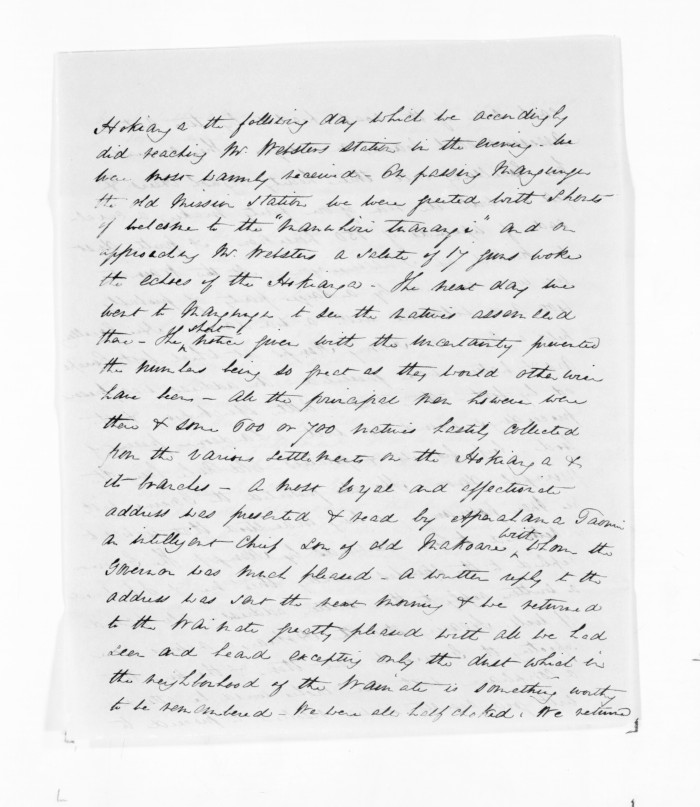 Hokianga the following day which we accordingly
did reaching Mr. Websters station in the evening. We
were most warmly received - On passing Mangungu
the old Mission Station we were greeted with Shouts
of welcome to the "Manuhiri tuarangi" and on
approaching Mr. Websters a salute of 17 guns woke
the echoes of the Hokianga - The next day we
went to Mangungu to see the natives assembled
there - The short notice given with the uncertainty prevented
the numbers being so great as they would otherwise
have been - All the principal men however were
there & some 600 or 700 natives hastily collected
from the various settlements on the Hokianga &
its branches - A most loyal and affectionate
address was presented & read by Aperahama Taonui
an intelligent Chief son of old Makoare with whom the
Governor was much pleased - A written reply to the
address was sent the next morning & we returned
to the Waimate greatly pleased with all we had
seen and heard excepting only the dust which in
the neighborhood of the Waimate is something worthy
to be remembered - We were all half choked. We return